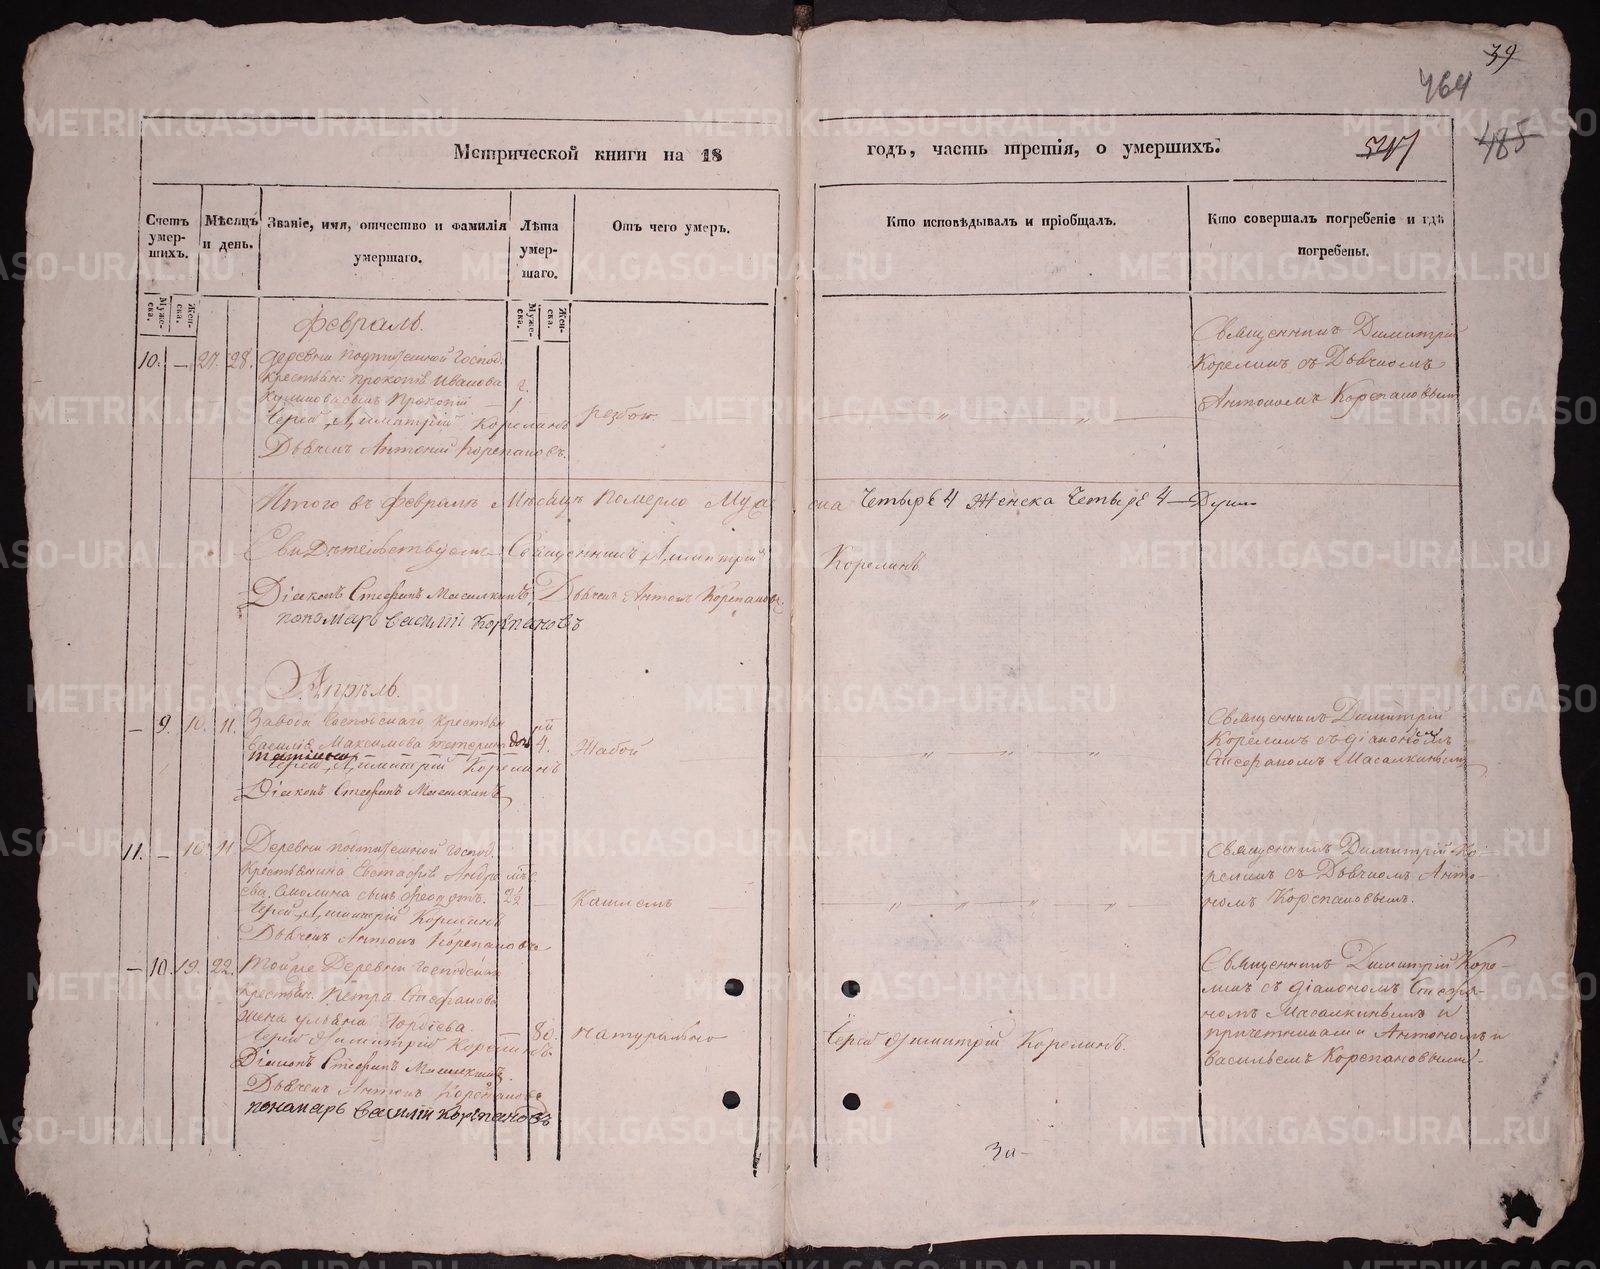 39
464
485
Метрической книги на 18 годъ, часть третія, о умершихъ.
Счетъ умер-шихъ.
Мѣсяцъ и день.
Званіе, имя, отчество и фамилія умершаго.
Лѣта умер-шаго.
Отъ чего умеръ.
Кто исповѣдывалъ и пріобщалъ.
Кто совершалъ погребеніе и гдѣ погребены.
Муже-ска.
Жен-ска.
Муже-ска.
Жен-ска.
Февраль.
10. — 27. 28. Деревни Господ:
крестьян: Прокопія Иванова
сынъ Прокопій
Іерей Димитрій Корелинъ
Дьячекъ Антоній Корепановъ.
Священникъ Димитрій
Корелинъ съ Дьячкомъ
Антономъ Корепановымъ
Итого въ Февралѣ Мѣсяцѣ померло Муже ска Четыре 4 Женска Четыре 4 — Души
Свидѣтельствуемъ Священникъ Димитрій Корелинъ
Діаконъ Стефанъ Масалкинъ, Дьячекъ Антонъ Корепановъ.
пономарь Василій Корепановъ
Апрѣль.
— 9. 10. 11. Завода крестьян
Василія Максимова дочь 4. Жабой
Іерей Димитрій Корелинъ
Діаконъ Стефанъ Масалкинъ
Священникъ Димитрій
Корелинъ съ діакономъ
Стефаномъ Масалкинымъ
11. — 10. 11. Деревни Господ.
крестьянина Евстафія Андре
ева Смолина сынъ Феодотъ. 2½ Кашлемъ
Іерей Димитрій Корелинъ
Дьячекъ Антонъ Корепановъ
Священникъ Димитрій Ко-
релинъ съ Дьячкомъ Анто-
номъ Корепановымъ.
— 10. 19. 22. Тойже Деревни Господскаго
крестьян. Петра Стефанова
жена Ульяна Гордѣева. 80. натурально
Іерей Димитрій Корелинъ.
Діаконъ Стефанъ Масалкинъ.
Дьячекъ Антонъ Корепановъ
пономарь Василій Корепановъ
Іерей Димитрій Корелинъ.
Священникъ Димитрій Коре-
линъ съ діакономъ Стефа-
номъ Масалкинымъ и
причетниками Антономъ и
Васильемъ Корепановыми.
За-
METRIKI.GASO-URAL.RU